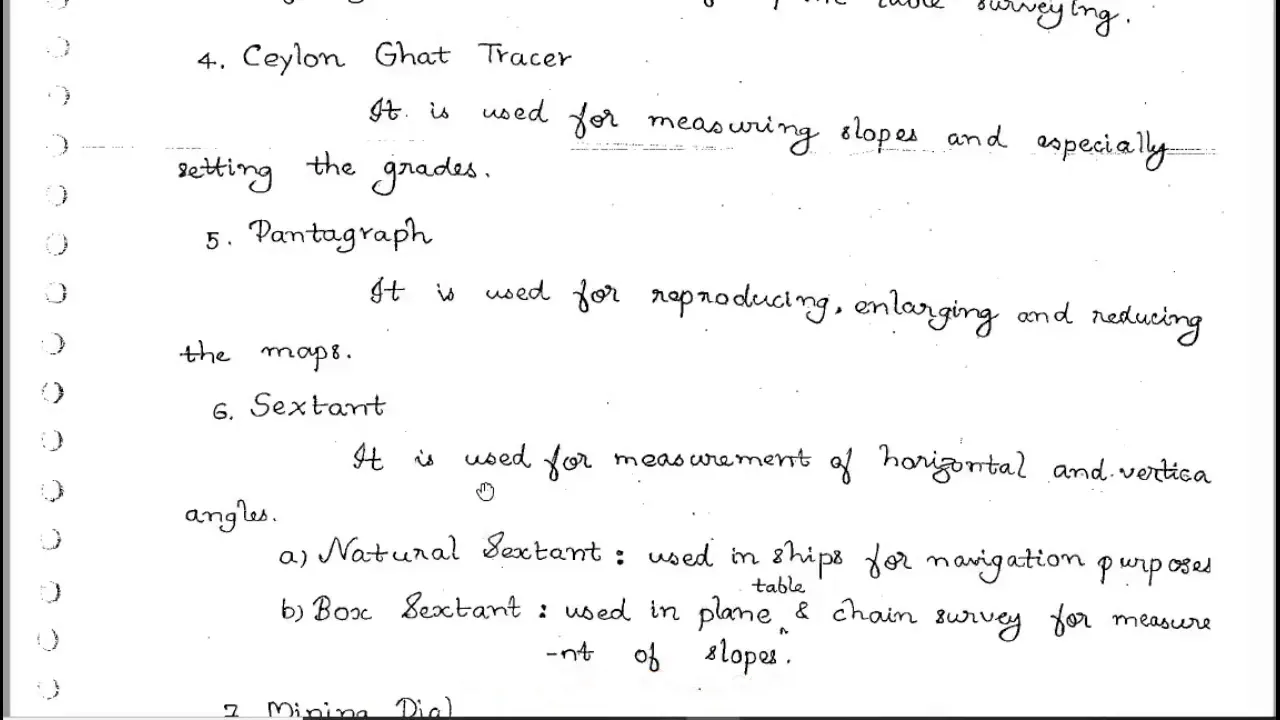 table surveying.
4. Ceylon Ghat Tracer
It is used for measuring slopes and especially
setting the grades.
5. Pantagraph
It is used for reproducing, enlarging and reducing
the maps.
6. Sextant
It is used for measurement of horizontal and vertica
angles.
a) Natural Sextant : used in ships for navigation purposes
table
b) Box Sextant : used in plane & chain survey for measure
-nt of slopes.
7 Mining Dial